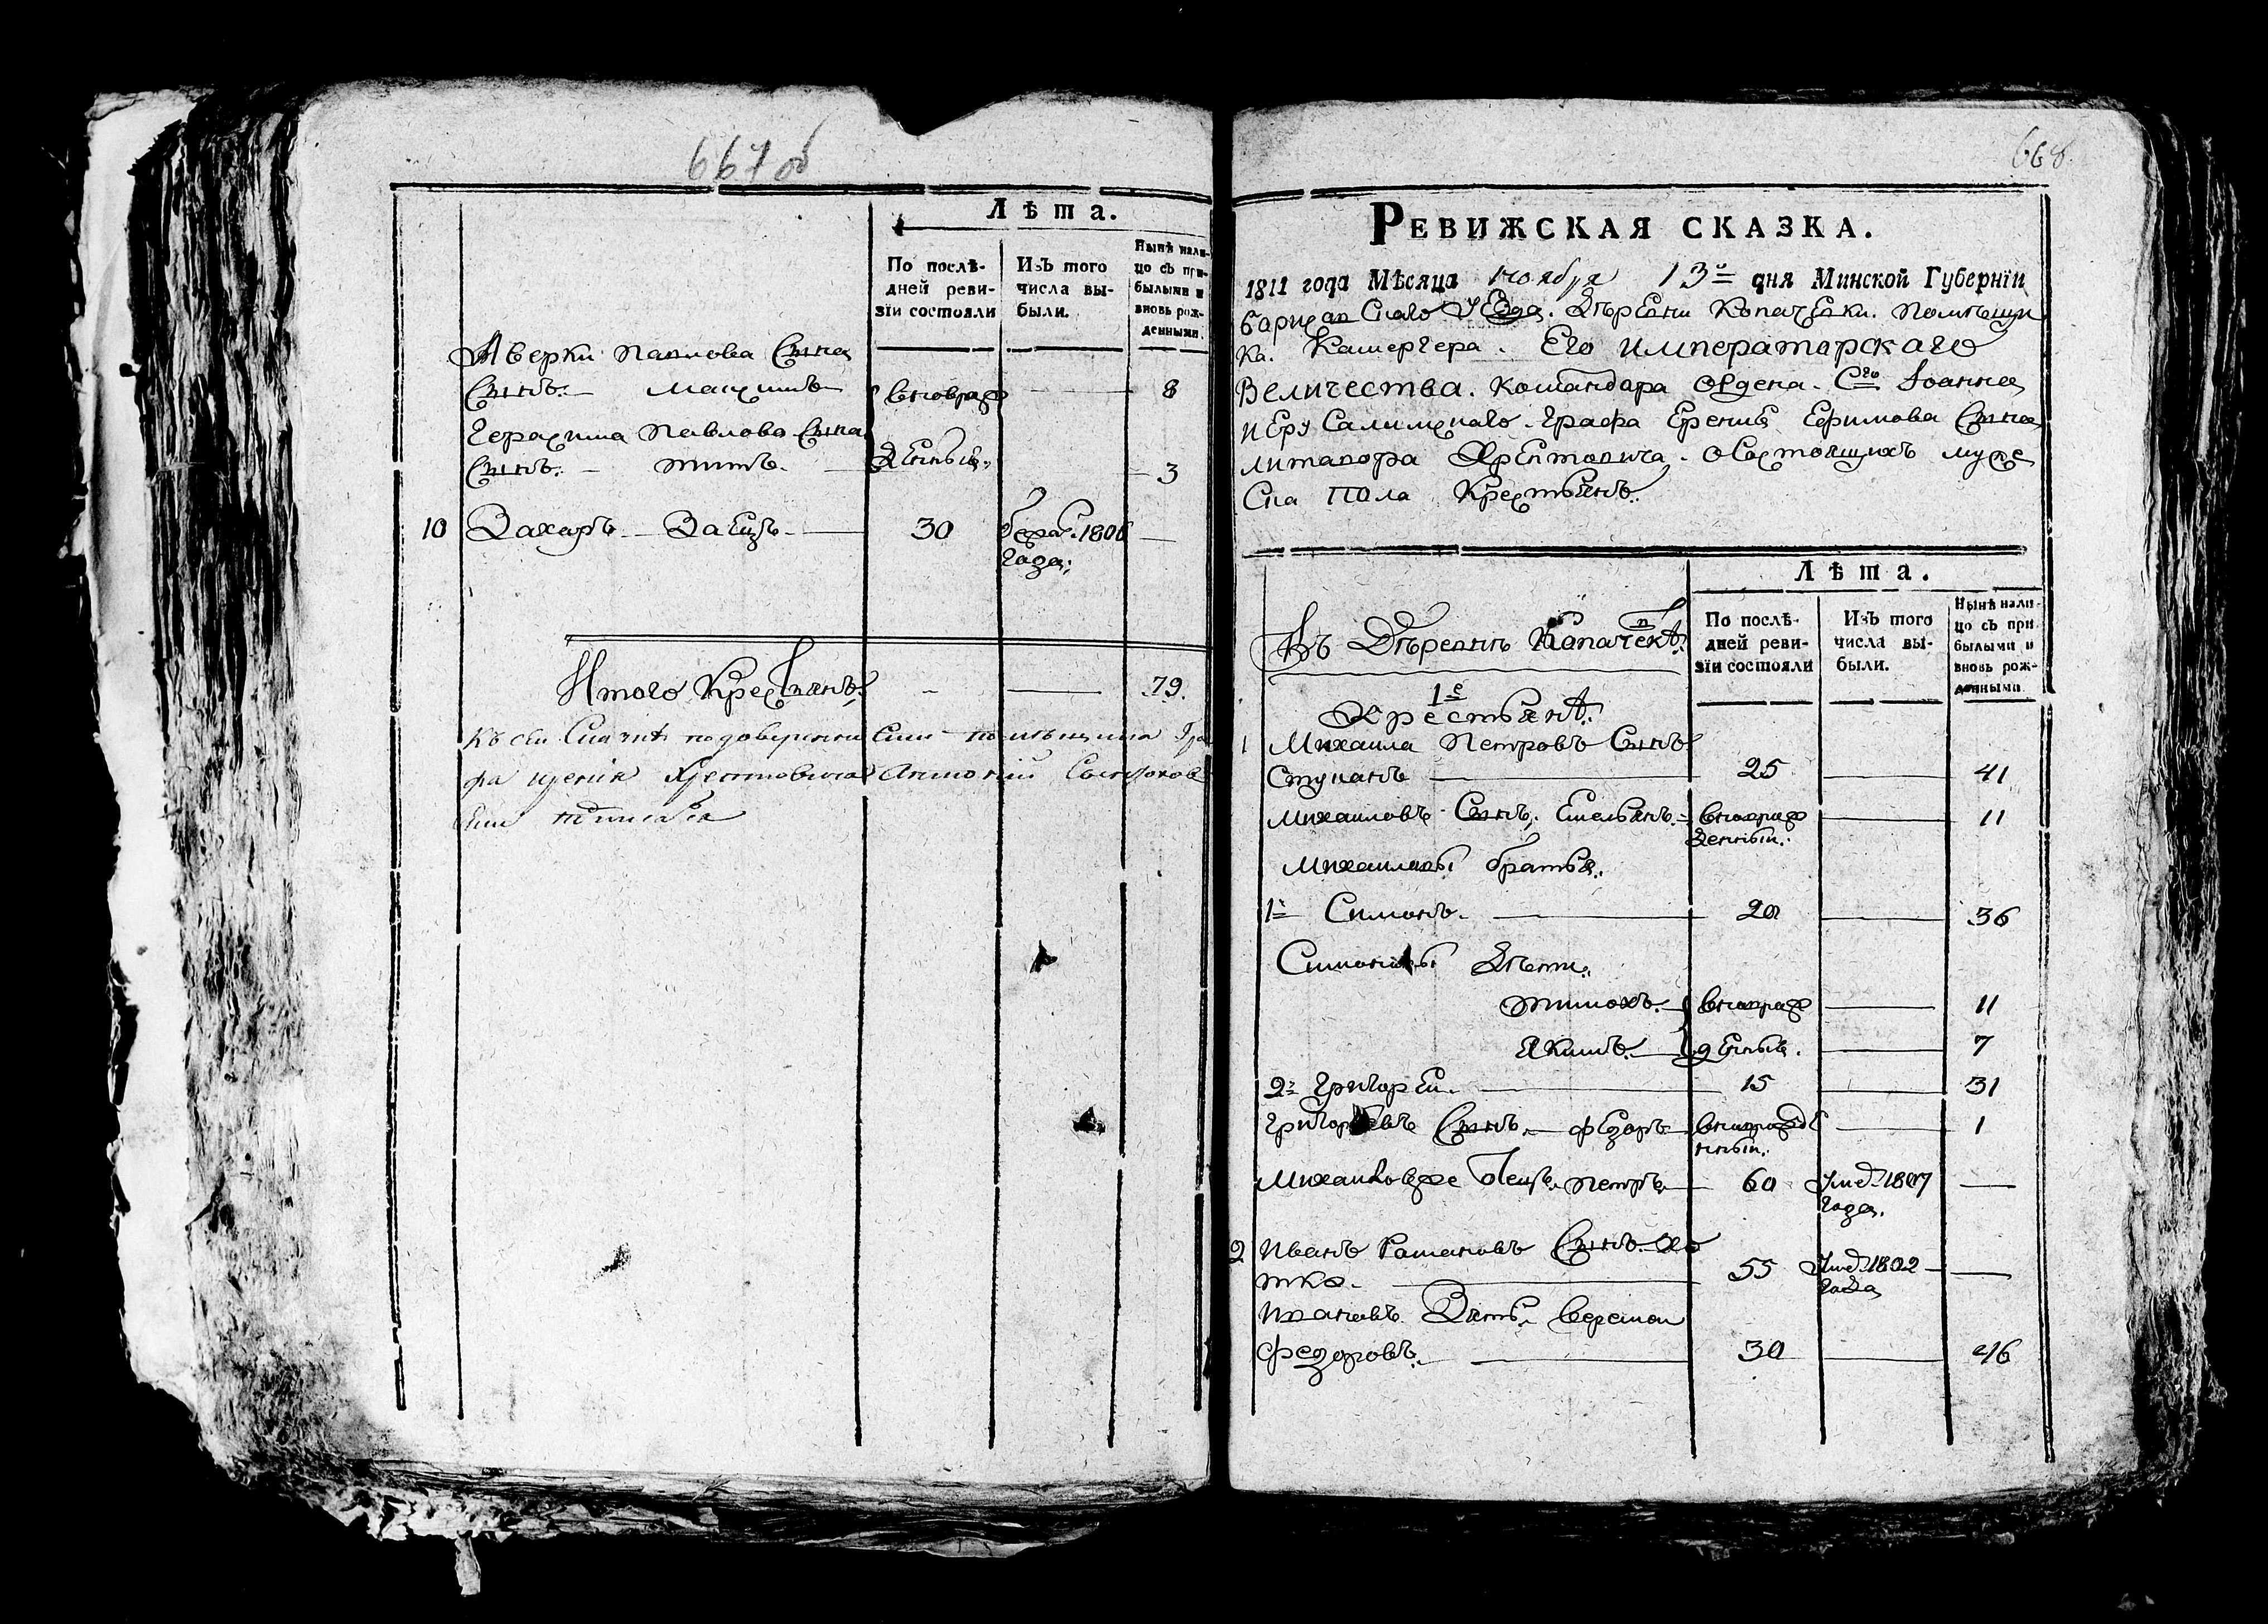 667 об
Лѣта.
По послѣ-
дней реви-
зіи состояли
Изъ того
числа вы-
были.
Нынѣ нали-
цо съ при-
былыми и
вновь рож-
денными.
Аверки Павлова Сына
Сынъ. Максимъ вновь рож 8
Герасима Павлова Сына
Сынъ. Титъ. денныя. 3
10 Захаръ Заецъ 30 1806
года.
Итого Крестьянъ. 79.
къ сей Сказкѣ по доверенности помѣщика Гра
фа Иренія Хрептовича Антоній
подписался
668
Ревижская сказка.
1811 года Мѣсяца ноября 13го дня Минской Губерніи
Борисовскаго Уезда. Дѣревни Копачевки. Помѣщи
ка. Камергера. Его Императорскаго
Величества. командора Ордена. Сго Іоанна
Иерусалимскаго. Графа Еренія Ефимова Сына
Литавора Хрептовича. о Состоящихъ муже
ска Пола Крестьянъ.
Лѣта.
По послѣ-
дней реви-
зіи состояли
Изъ того
числа вы-
были.
Нынѣ нали-
цо съ при
былыми и
вновь рож-
денными.
Въ Дѣревнѣ
1е
Крестьянъ.
1 Михаила Петровъ Сынъ
Ступакъ 25 41
Михаиловъ Сынъ, Емельянъ. вновь рож 11
денный.
Михаиловы братья.
1й Симонъ. 20 36
Симоновы Дѣти.
Тимохъ. вновь рож 11
Якимъ. денныя. 7
2й Григорей. 15 31
Григорьевъ Сынъ. Федоръ вновь рожде 1
нный.
Михайловъ же Отецъ Петръ 60 Умер. 1807
года.
2 Иванъ Романовъ Сынъ
тко. 55 Умер. 1802
года
Ивановъ Зять
Федоровъ. 30 46